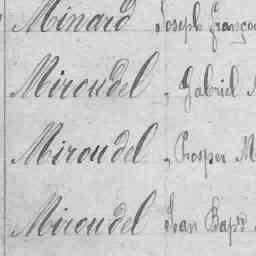 Minard Joseph Franço
Miroudel „ Gabriel M
Miroudel „ Prosper M
Miroudel Jean Bapt